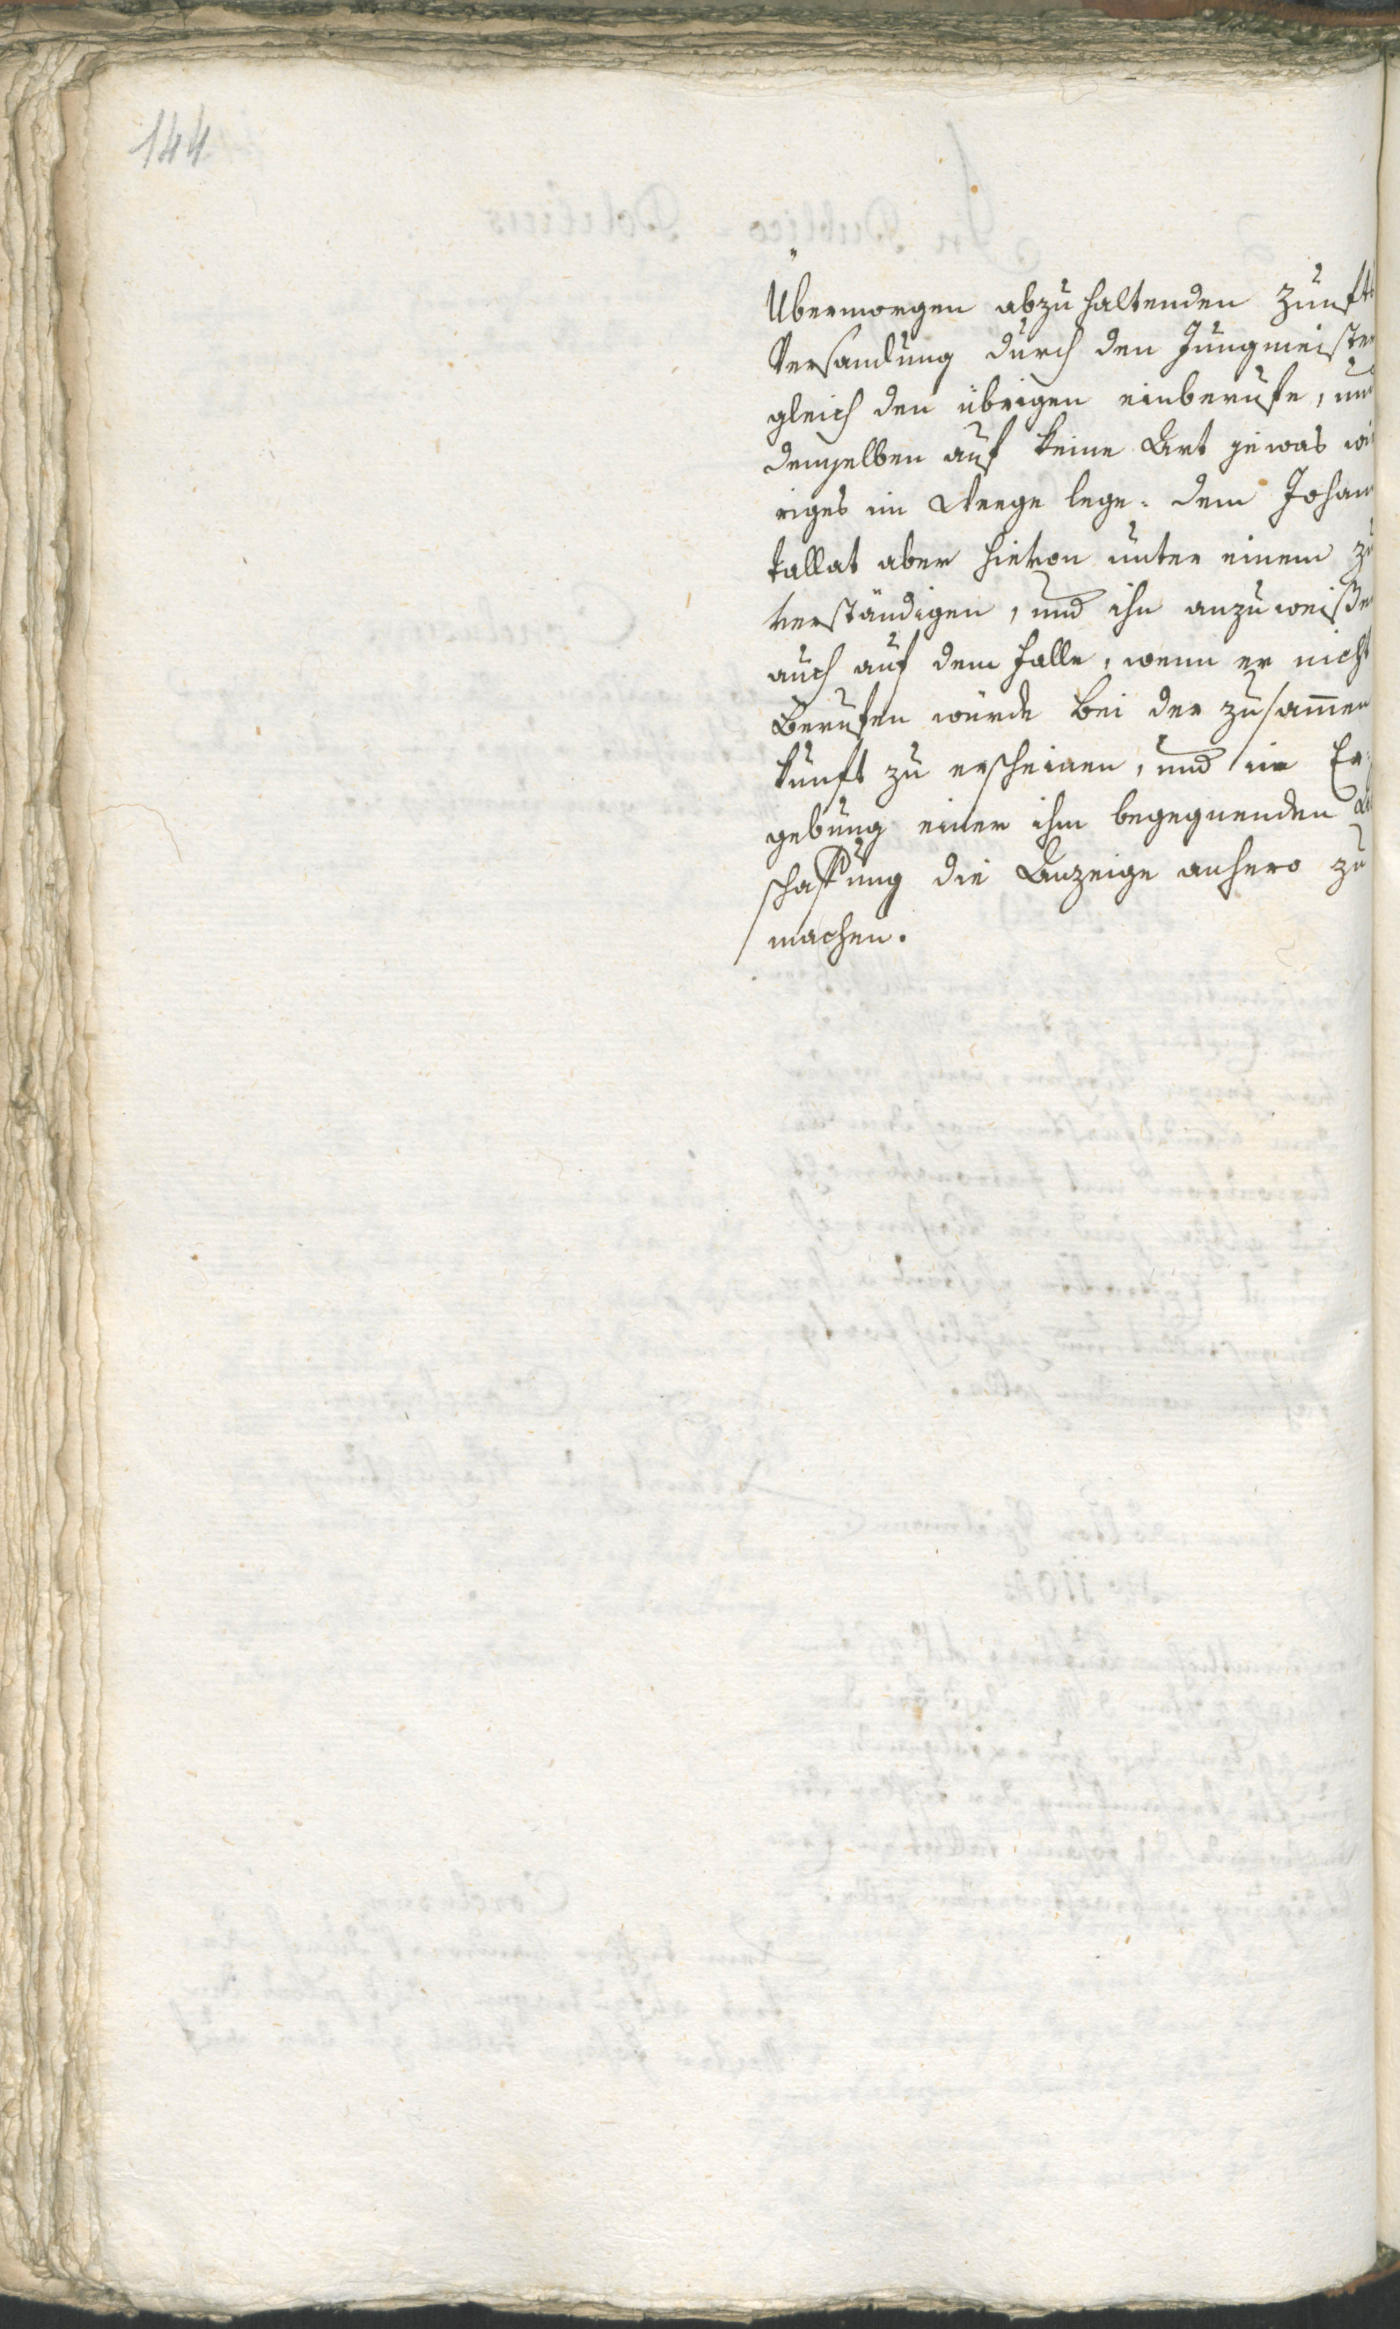 144
Übermorgen abzuhaltenden Zunfts
Versamlung durch den Jungmeister
gleich den übrigen einberufe, und
demselben auf keine Art jewas wi
riges im Weege lege. dem Johan
Kallat aber hievon unter einem zu
verständigen, und ihn anzuweißen
auch auf dem Falle, wenn er nicht
Berufen würde bei der Zusam̄en
kunft zu erscheinen, und im Er-
gebung einer ihm begegnenden
schaffung die Anzeige anhero zu
machen.